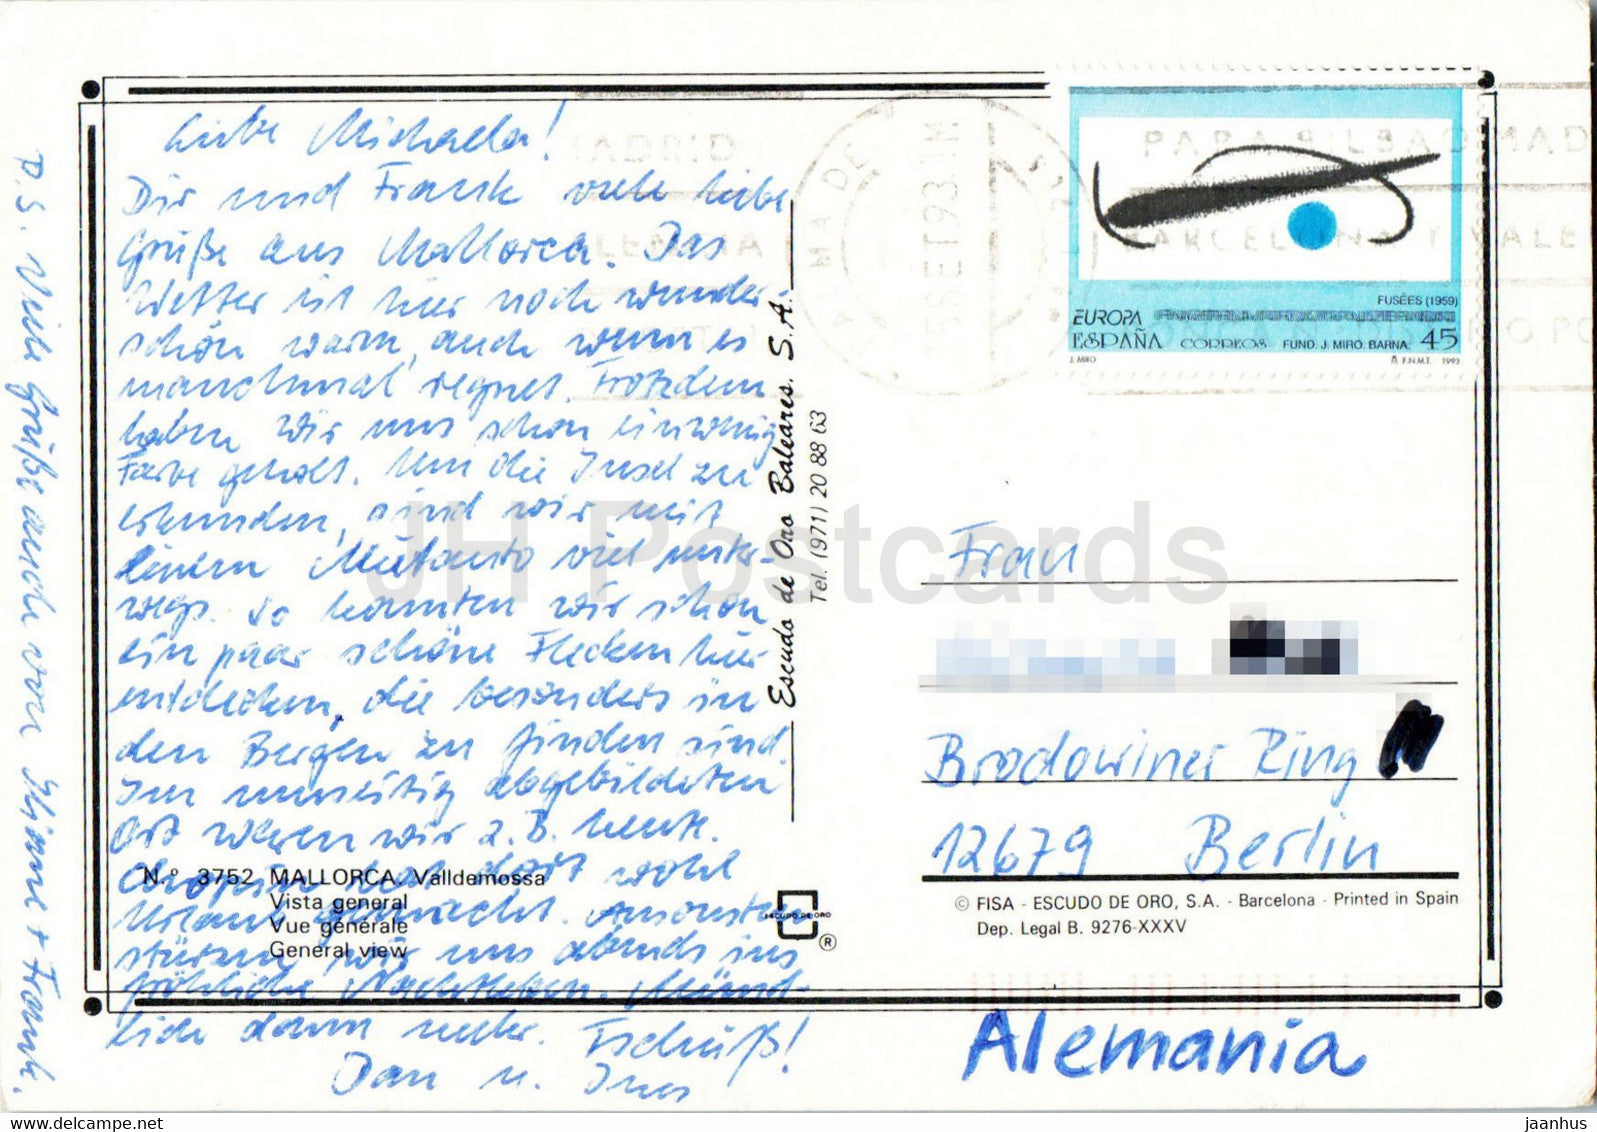 Liebe Michaela!
Dir und Frank viele liebe
Grüße aus Mallorca. Das
Wetter ist hier noch wunder-
schön warm, auch wenn es
manchmal regnet. Trotzdem
haben wir uns schon ein wenig
Farbe geholt. Um die Insel zu
erkunden, sind wir mit
einem Mietauto viel unter-
wegs. So konnten wir schon
ein paar schöne Flecken hier
entdecken, die besonders in
den Bergen zu finden sind.
Im umseitig abgebildeten
Ort waren wir z.B. heute.
Chopin hat dort wohl
Urlaub gemacht. Ansonsten
stürzen wir uns abends ins
fröhliche Nachtleben. Münd-
lich dann mehr. Tschüß!
Jan u. Ines
P.S. Viele Grüße auch von + Frank.
N.º 3752 MALLORCA. Valldemossa
Vista general
Vue générale
General view
Escudo de Oro Baleares. S.A.
Tel. (971) 20 88 63
ESCUDO DE ORO
®
MADRID
PARA BILBAO MAD
BARCELONA Y VALE
FUSÉES (1959)
EUROPA
ESPAÑA CORREOS FUND. J. MIRÓ. BARNA. 45
J. MIRO F.N.M.T. 1993
Frau
Brodowiner Ring
12679 Berlin
© FISA - ESCUDO DE ORO, S.A. - Barcelona - Printed in Spain
Dep. Legal B. 9276-XXXV
Alemania
JH Postcards
delcampe.net
jaanhus